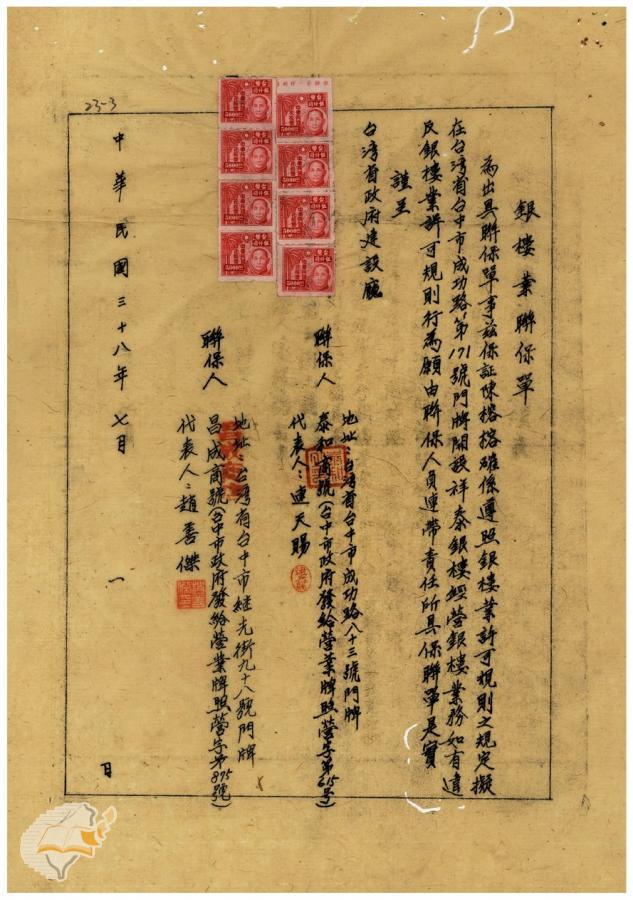 23-3
銀樓業聯保單
為出具聯保單事茲保証陳榕榕確係遵照銀樓業許可規則之規定擬
在台湾省台中市成功路第171號門牌開設祥泰銀樓經营銀樓業務如有違
反銀樓業許可規則行為願由聯保人員連帶責任所具保聯單是實
謹呈
台湾省政府建設廳
聯保人
地址:台湾省台中市成功路八十三號門牌
泰和商號(台中市政府發給營業牌照營字第615号)
代表人:連天賜
聯保人
地址:台湾省台中市继光街九十八號門牌
昌成商號(台中市政府發給营業牌照营字第875號)
代表人:趙善傑
中華民國三十八年七月一日